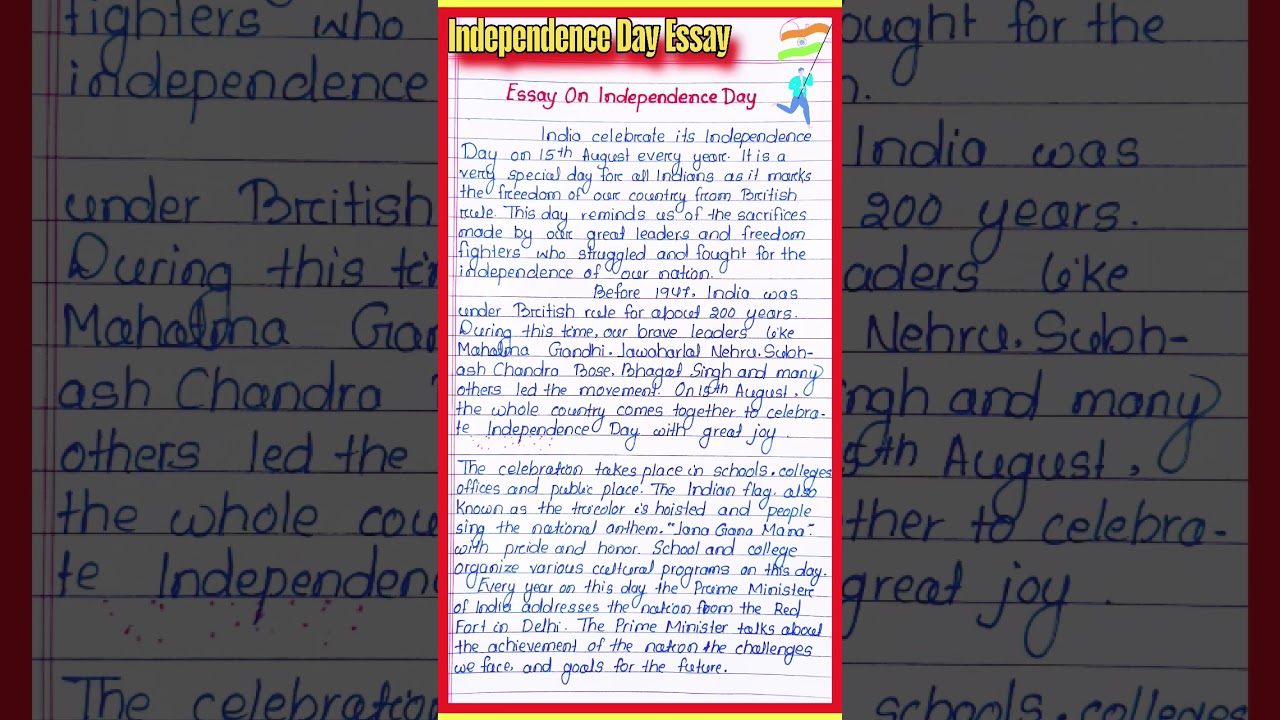 Independence Day Essay
Essay On Independence Day
India celebrate its Independence
Day on 15th August every year. It is a
very special day for all Indians as it marks
the freedom of our country from British
rule. This day reminds us of the sacrifices
made by our great leaders and freedom
fighters who struggled and fought for the
independence of our nation.
Before 1947, India was
under British rule for about 200 years.
During this time, our brave leaders like
Mahatma Gandhi, Jawaharlal Nehru, Subh-
ash Chandra Bose, Bhagat Singh and many
others led the movement. On 15th August,
the whole country comes together to celebra-
te Independence Day with great joy.
The celebration takes place in schools, colleges
offices and public place. The Indian flag, also
known as the tricolor is hoisted and people
sing the national anthem. "Jana Gana Mana".
with pride and honor. School and college
organize various cultural programs on this day.
Every year on this day the Prime Minister
of India addresses the nation from the Red
Fort in Delhi. The Prime Minister talks about
the achievement of the nation the challenges
we face, and goals for the future.
fighters who
independence
under British
During this
Mahatma
ash Chandra
others led the
the whole
te
The
for the
India was
200 years.
like
Nehru, Subh-
and many
August,
to celebra-
great joy.
schools, colleges